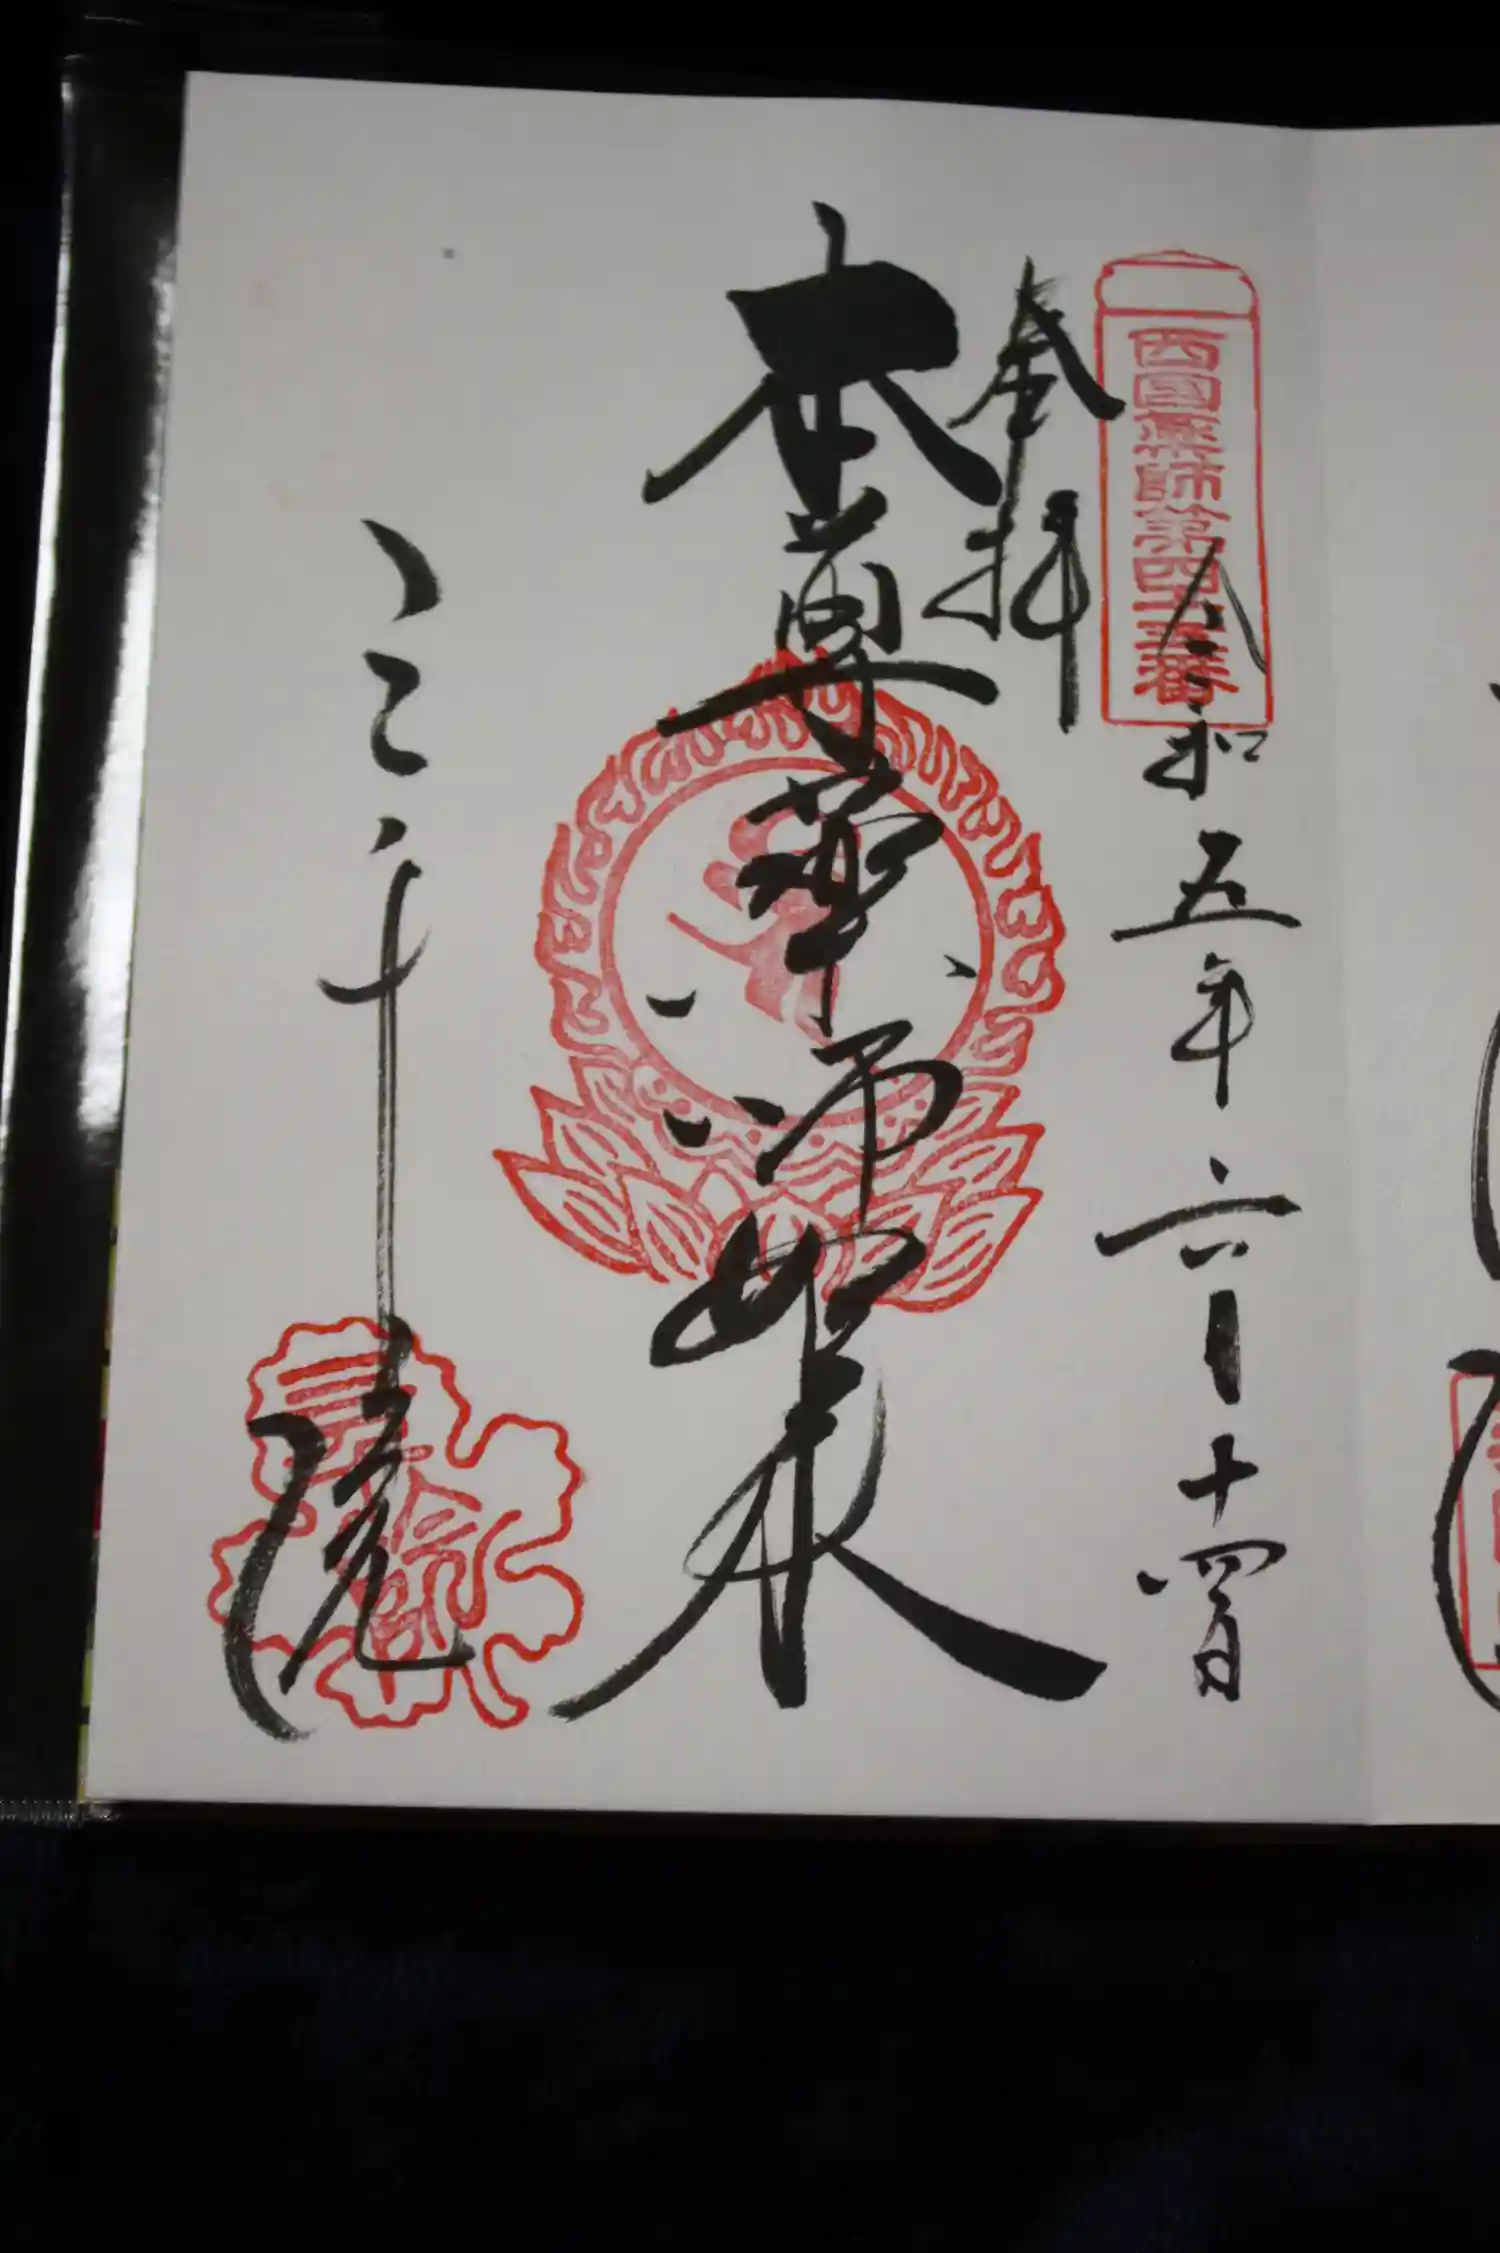 西國薬師第四十五番
令和五年六月十四日
奉拝
本尊薬師如来
三千院